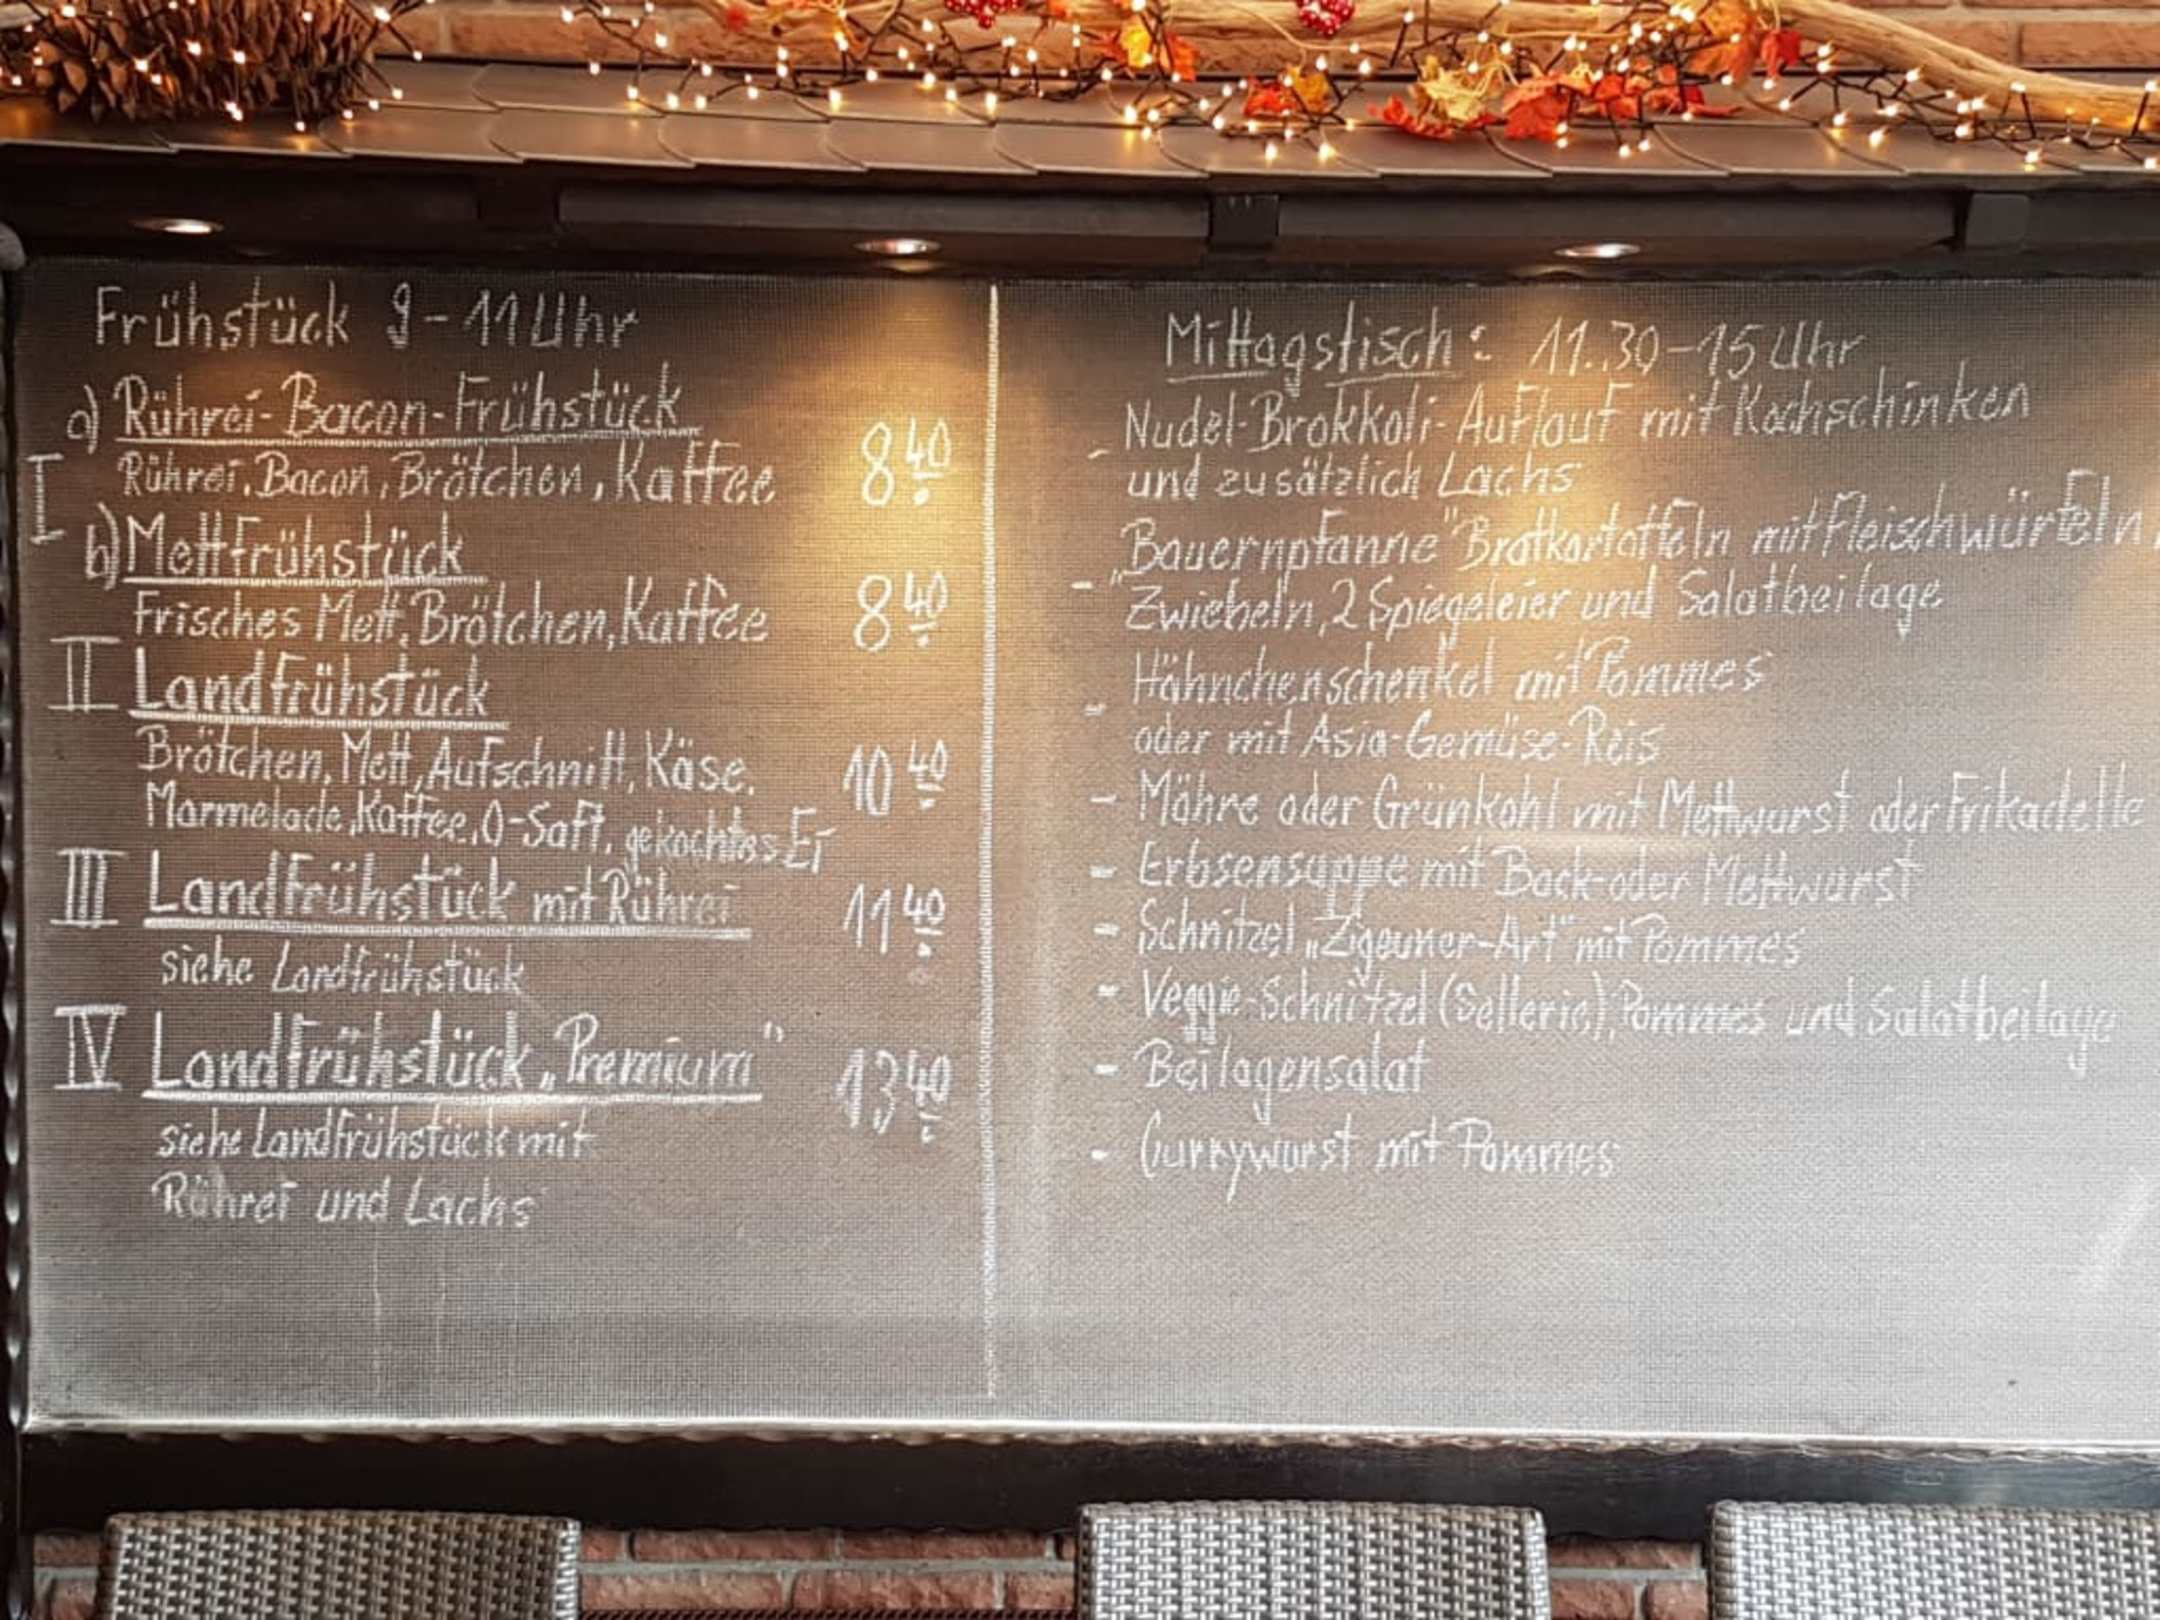 Frühstück 9-11 Uhr
I a) Rührei-Bacon-Frühstück
Rührei, Bacon, Brötchen, Kaffee 8 40
b) Mettfrühstück
Frisches Mett, Brötchen, Kaffee 8 40
II Landfrühstück
Brötchen, Mett, Aufschnitt, Käse, 10 40
Marmelade, Kaffee, O-Saft, gekochtes Ei
III Landfrühstück mit Rührei 11 40
siehe Landfrühstück
IV Landfrühstück „Premium" 13 40
siehe Landfrühstück mit
Rührei und Lachs
Mittagstisch: 11.30-15 Uhr
- Nudel-Brokkoli-Auflauf mit Kochschinken
und zusätzlich Lachs
- „Bauernpfanne" Bratkartoffeln mit Fleischwürfeln,
Zwiebeln, 2 Spiegeleier und Salatbeilage
- Hähnchenschenkel mit Pommes
oder mit Asia-Gemüse-Reis
- Möhre oder Grünkohl mit Mettwurst oder Frikadelle
- Erbsensuppe mit Bock- oder Mettwurst
- Schnitzel „Zigeuner-Art" mit Pommes
- Veggie-Schnitzel (Sellerie), Pommes und Salatbeilage
- Beilagensalat
- Currywurst mit Pommes